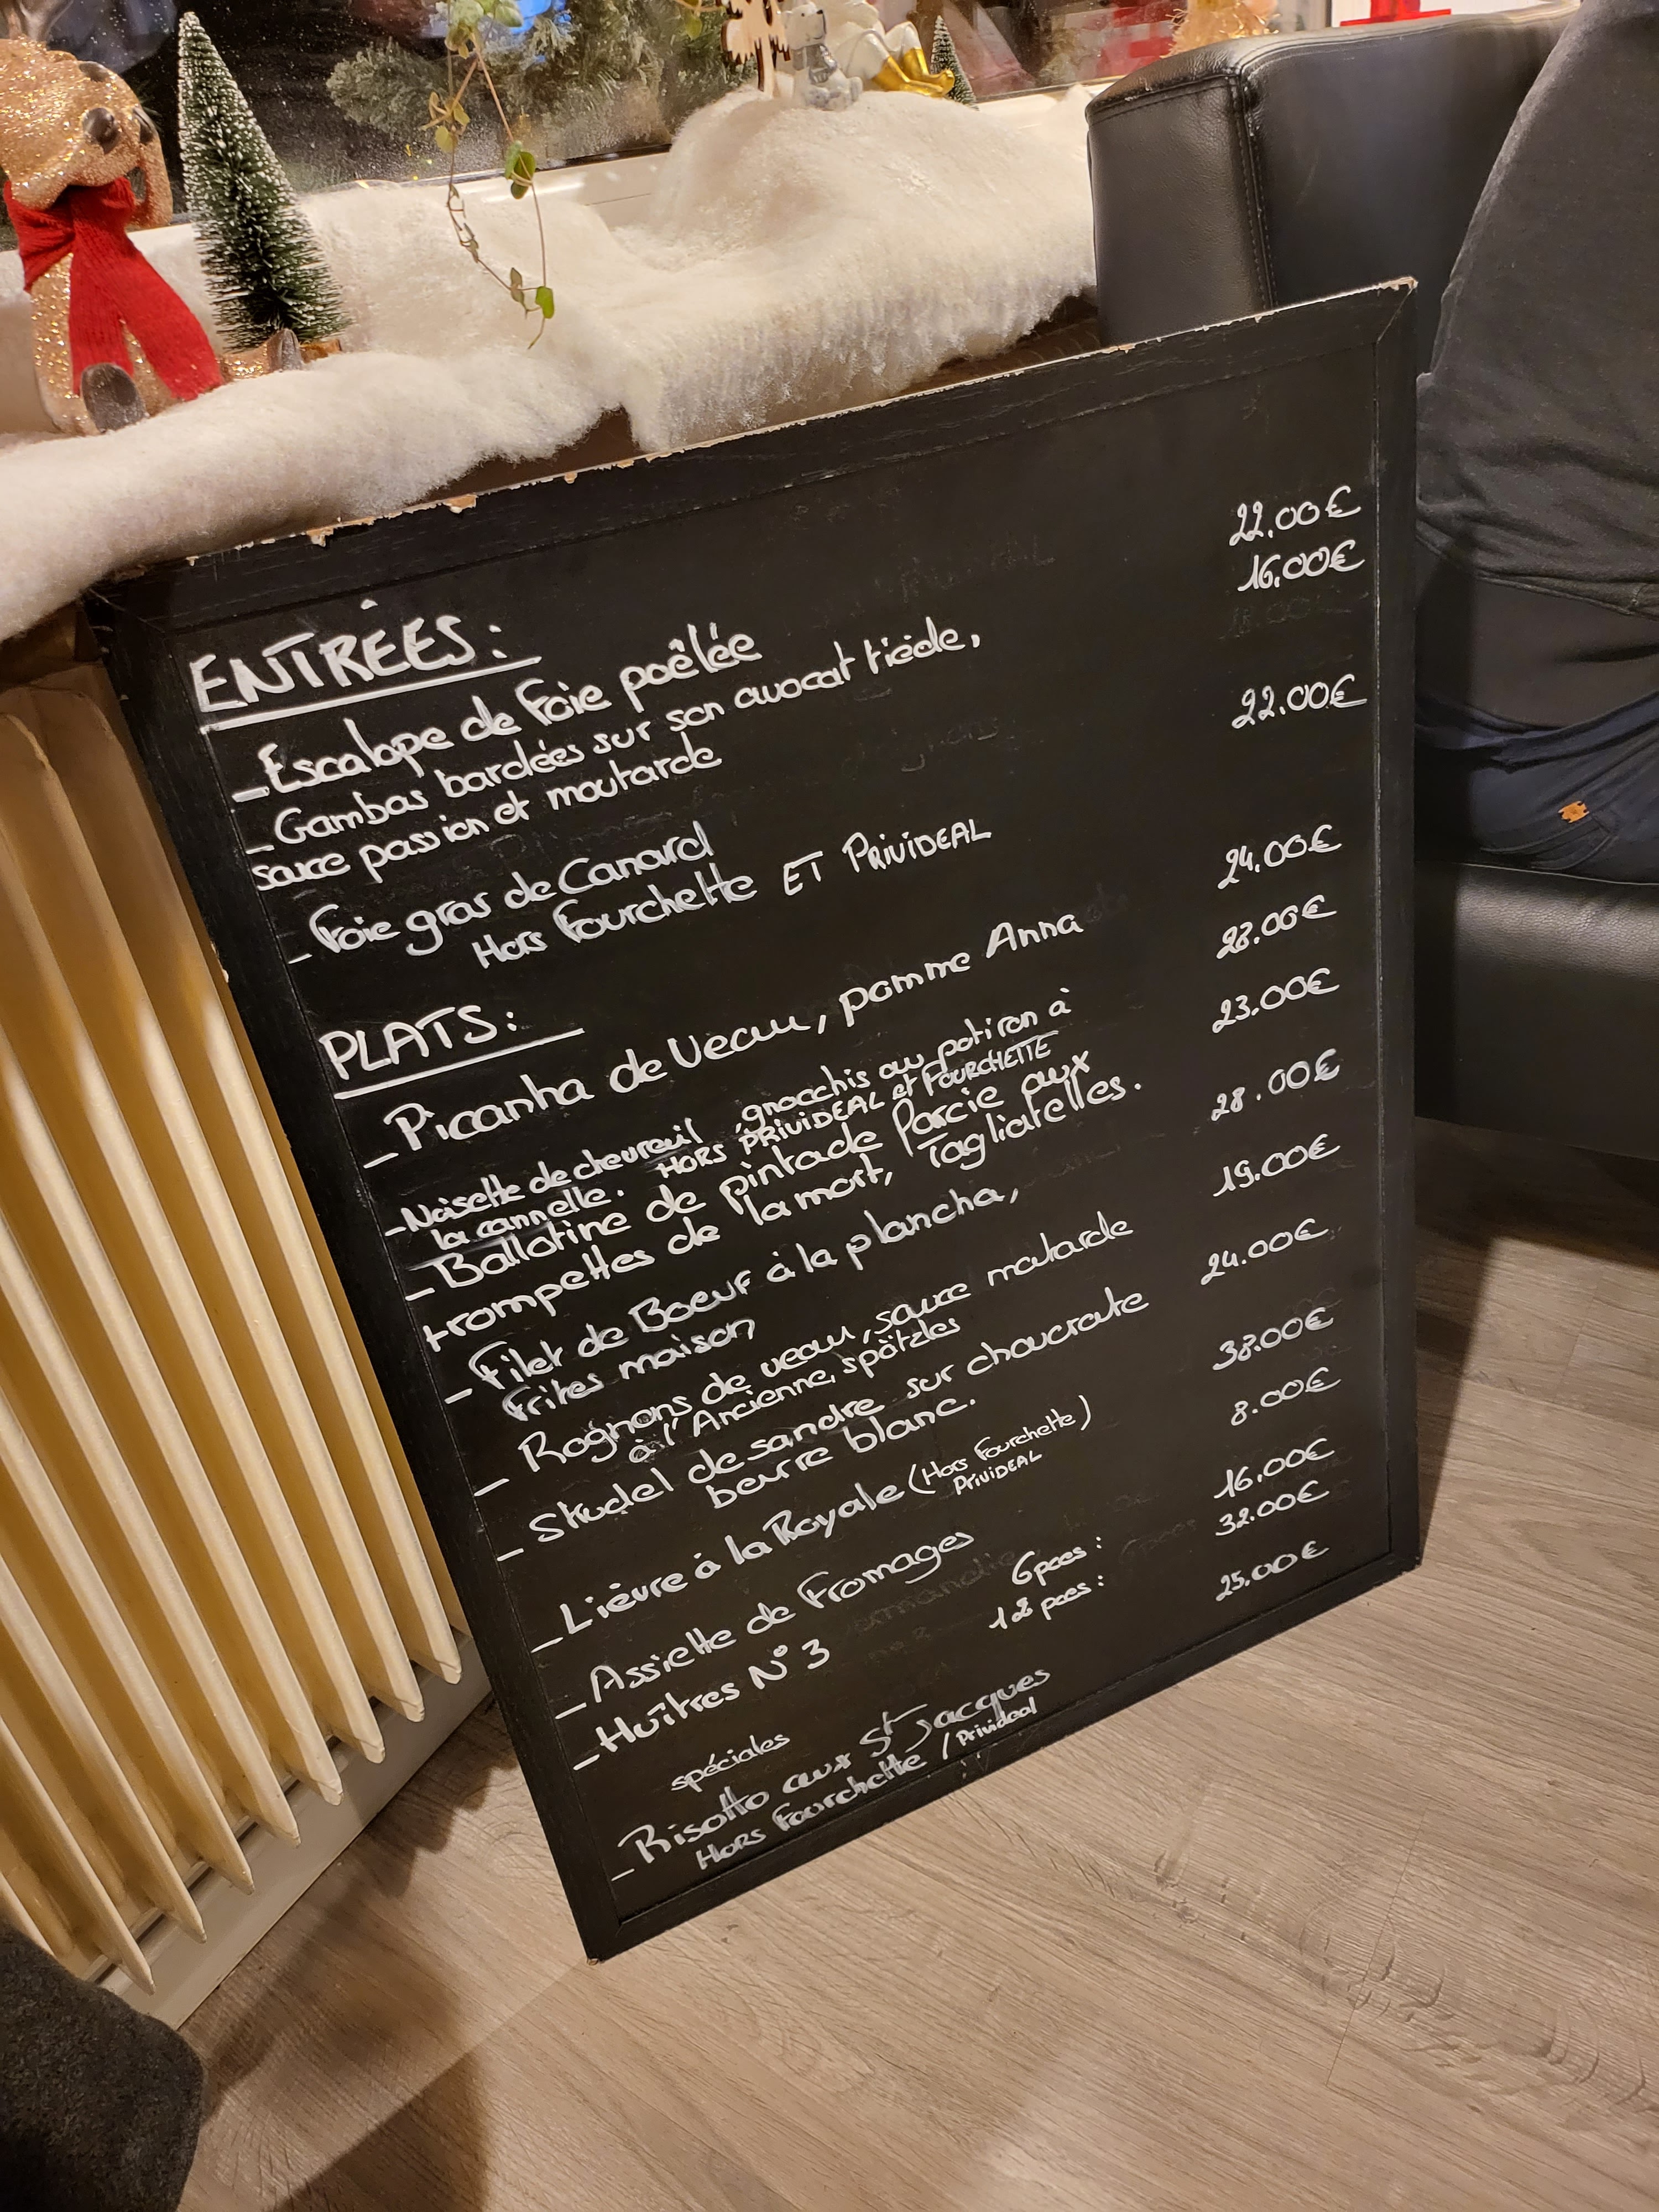 ENTRÉES:
_Escalope de Foie poêlée 22.00€
_Gambas bardées sur son avocat tiède, 16.00€
sauce passion et moutarde
_Foie gras de Canard 22.00€
HORS Fourchette ET PRIVIDEAL
PLATS:
_Picanha de Veau, pomme Anna 24.00€
_Noisette de chevreuil gnocchis au potiron à 28.00€
la cannelle. HORS PRIVIDEAL et FOURCHETTE
_Ballotine de pintade farcie aux 23.00€
trompettes de la mort, Tagliatelles.
_Filet de Boeuf à la plancha, 28.00€
Frites maison
_Rognons de veau, sauce moutarde 19.00€
à l'Ancienne, spätzles
_Strudel de sandre sur choucroute 24.00€
beurre blanc.
_Lièvre à la Royale (Hors Fourchette) 38.00€
PRIVIDEAL
_Assiette de Fromages 8.00€
_Huîtres N°3 6 pces: 16.00€
12 pces: 32.00€
spéciales
_Risotto aux St Jacques 25.00€
HORS Fourchette / Privideal